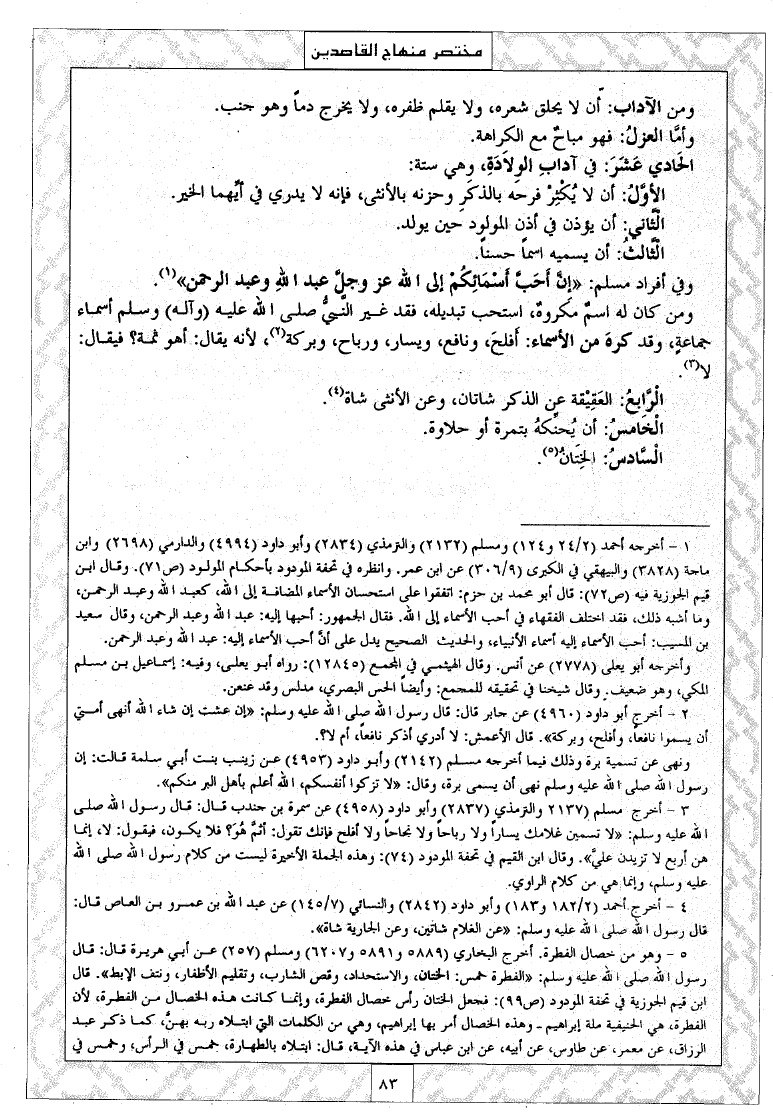 مختصر منهاج القاصدين
ومن الآداب: أن لا يحلق شعره، ولا يقلم ظفره، ولا يخرج دماً وهو جنب.
وأمَّا العزلُ: فهو مباحٌ مع الكراهة.
الحادي عَشَرَ: في آدابِ الوِلادَةِ، وهي ستة:
الأوَّلُ: أن لا يُكْثِرْ فرحه بالذكَرِ وحزنه بالأنثى، فإنه لا يدري في أيهما الخير.
الْثَّاني: أن يؤذن في أذن المولود حين يولد.
الْثَّالثُ: أن يسميه اسماً حسناً.
وفي أفراد مسلم: «إنَّ أَحَبَّ أَسْمَائِكُمْ إلى الله عز وجلَّ عبد اللهِ وعبد الرحمن»(١).
ومن كان له اسمٌ مكروهٌ، استحب تبديله، فقد غير النَّبيُّ صلى الله عليه (وآله) وسلم أسماء
جماعةٍ، وقد كرهَ من الأسماء: أفلحَ، ونافع، ويسار، ورباح، وبركة(٢)، لأنه يقال: أهو ثمة؟ فيقال:
لا(٣).
الْرَّابعُ: العَقِيْقة عن الذكر شاتان، وعن الأنثى شاة(٤).
الْخَامسُ: أن يُحنِّكهُ بتمرة أو حلاوة.
الْسَّادسُ: الخِتَانُ(٥).
١ – أخرجه أحمد (٢٤/٢ و١٢٤) ومسلم (٢١٣٢) والترمذي (٢٨٣٤) وأبو داود (٤٩٩٤) والدارمي (٢٦٩٨) وابن
ماجة (٣٨٢٨) والبيهقي في الكبرى (٣٠٦/٩) عن ابن عمر. وانظره في تحفة المودود بأحكام المولود (ص٧١). وقال ابن
قيم الجوزية فيه (ص٧٢): قال أبو محمد بن حزم: اتفقوا على استحسان الأسماء المضافة إلى الله، كعبد الله وعبد الرحمن،
وما أشبه ذلك، فقد اختلف الفقهاء في أحب الأسماء إلى الله. فقال الجمهور: أحبها إليه: عبد الله وعبد الرحمن، وقال سعيد
بن المسيب: أحب الأسماء إليه أسماء الأنبياء، والحديث الصحيح يدل على أنَّ أحب الأسماء إليه: عبد الله وعبد الرحمن.
وأخرجه أبو يعلى (٢٧٧٨) عن أنس. وقال الهيثمي في المجمع (١٢٨٤٥): رواه أبو يعلى، وفيه: إسماعيل بن مسلم
المكي، وهو ضعيف. وقال شيخنا في تحقيقه للمجمع: وأيضاً الحسن البصري، مدلس وقد عنعن.
٢ – أخرج أبو داود (٤٩٦٠) عن جابر قال: قال رسول الله صلى الله عليه وسلم: «إن عشت إن شاء الله أنهى أمتي
أن يسموا نافعاً، وأفلح، وبركة». قال الأعمش: لا أدري أذكر نافعاً، أم لا؟.
ونهى عن تسمية برة وذلك فيما أخرجه مسلم (٢١٤٢) وأبو داود (٤٩٥٣) عن زينب بنت أبي سلمة قالت: إن
رسول الله صلى الله عليه وسلم نهى أن يسمى برة، وقال: «لا تزكوا أنفسكم، الله أعلم بأهل البر منكم».
٣ – أخرج مسلم (٢١٣٧ والترمذي (٢٨٣٧) وأبو داود (٤٩٥٨) عن سمرة بن جندب قال: قال رسول الله صلى
الله عليه وسلم: «لا تسمين غلامك يساراً ولا رباحاً ولا نجاحاً ولا أفلح فإنك تقول: أثمَّ هُوَ؟ فلا يكون، فيقول: لا، إنما
هن أربع لا تزيدن عليَّ». وقال ابن القيم في تحفة المودود (٧٤): وهذه الجملة الأخيرة ليست من كلام رسول الله صلى الله
عليه وسلم، وإنما هي من كلام الراوي.
٤ – أخرج أحمد (١٨٢/٢ و١٨٣) وأبو داود (٢٨٤٢) والنسائي (١٤٥/٧) عن عبد الله بن عمرو بن العاص قال:
قال رسول الله صلى الله عليه وسلم: «عن الغلام شاتين، وعن الجارية شاة».
٥ – وهو من خصال الفطرة. أخرج البخاري (٥٨٨٩ و٥٨٩١ و٦٢٠٧) ومسلم (٢٥٧) عن أبي هريرة قال: قال
رسول الله صلى الله عليه وسلم: «الفطرة خمس: الختان، والاستحداد، وقص الشارب، وتقليم الأظفار، ونتف الإبط». قال
ابن قيم الجوزية في تحفة المودود (ص٩٩): فجعل الختان رأس خصال الفطرة، وإنما كانت هذه الخصال من الفطرة، لأن
الفطرة، هي الحنيفية ملة إبراهيم – وهذه الخصال أمر بها إبراهيم، وهي من الكلمات التي ابتلاه ربه بهنَّ، كما ذكر عبد
الرزاق، عن معمر، عن طاوس، عن أبيه، عن ابن عباس في هذه الآية، قال: ابتلاه بالطهارة، خمس في الرأس، وخمس في
٨٣